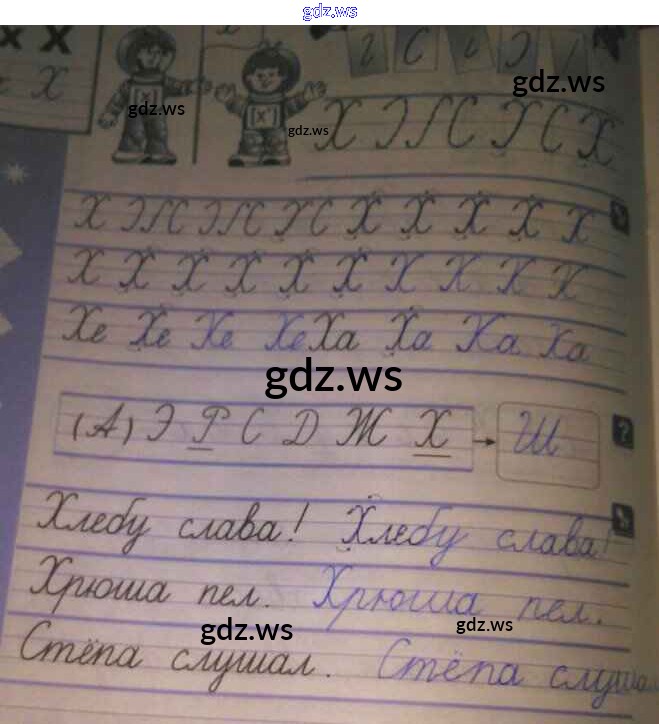 gdz.ws
Х Х
Х
[х] [х']
gdz.ws
gdz.ws
gdz.ws
Х Х С Х С Х
Х Х Х Х Х Х Х
Х Х Х Х Х Х Х Х Х Х
Хе Хе Хе Хе Ха Ха Ха Ха
gdz.ws
(А) Э Р С Д Ж Х → Ш
?
Хлебу слава! Хлебу слава!
Хрюша пел. Хрюша пел.
gdz.ws
gdz.ws
Стёпа слушал. Стёпа слушал